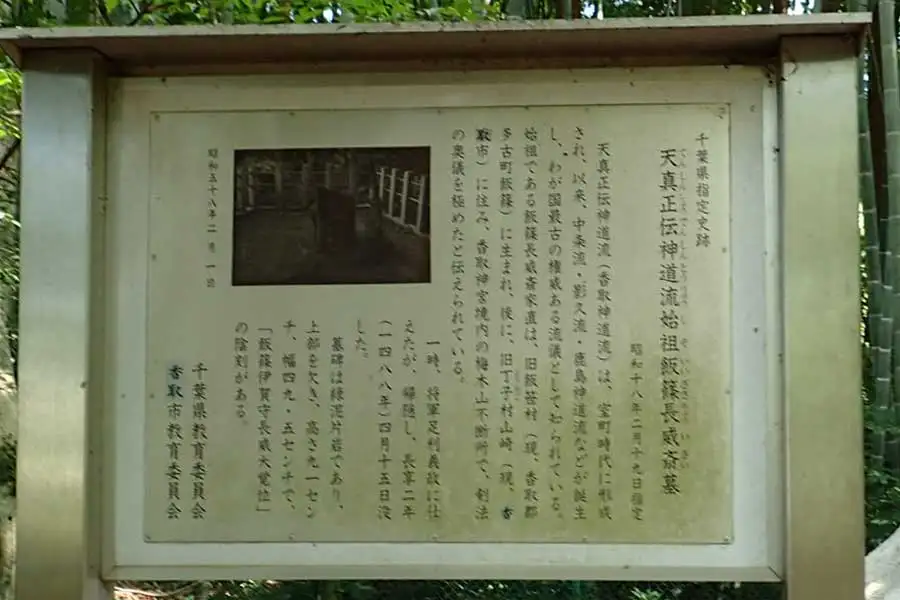 千葉県指定史跡
天真正伝神道流始祖飯篠長威斎墓
昭和十八年二月十九日指定
天真正伝神道流(香取神道流)は、室町時代に形成
され、以来、中条流・影久流・鹿島神道流などが誕生
し、わが国最古の権威ある流儀として知られている。
始祖である飯篠長威斎家直は、旧飯笹村(現、香取郡
多古町飯篠)に生まれ、後に、旧丁子村山崎(現、香
取市)に住み、香取神宮境内の梅木山不断所で、剣法
の奥議を極めたと伝えられている。
一時、将軍足利義政に仕
えたが、帰隠し、長享二年
(一四八八年)四月十五日没
した。
墓碑は緑泥片岩であり、
上部を欠き、高さ九一セン
チ、幅四九・五センチで、
「飯篠伊賀守長威大覚位」
の陰刻がある。
昭和五十八年二月一日
千葉県教育委員会
香取市教育委員会